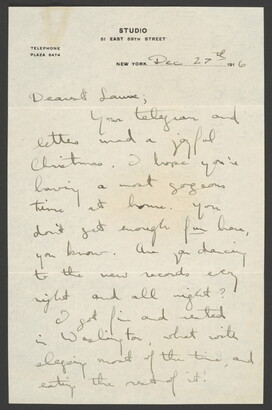 STUDIO
51 EAST 59TH STREET
TELEPHONE
PLAZA 6474
NEW YORK, Dec 27th 1916
Dearest
Your telegram and
letter made a joyful
Christmas. I hope you're
having a most gorgeous
time at home. You
don't get enough fun here,
you know. Are you dancing
to the new records every
night and all night?
I got fin and rested
in Washington, what with
sleeping most of the time, and
eating the rest of it!